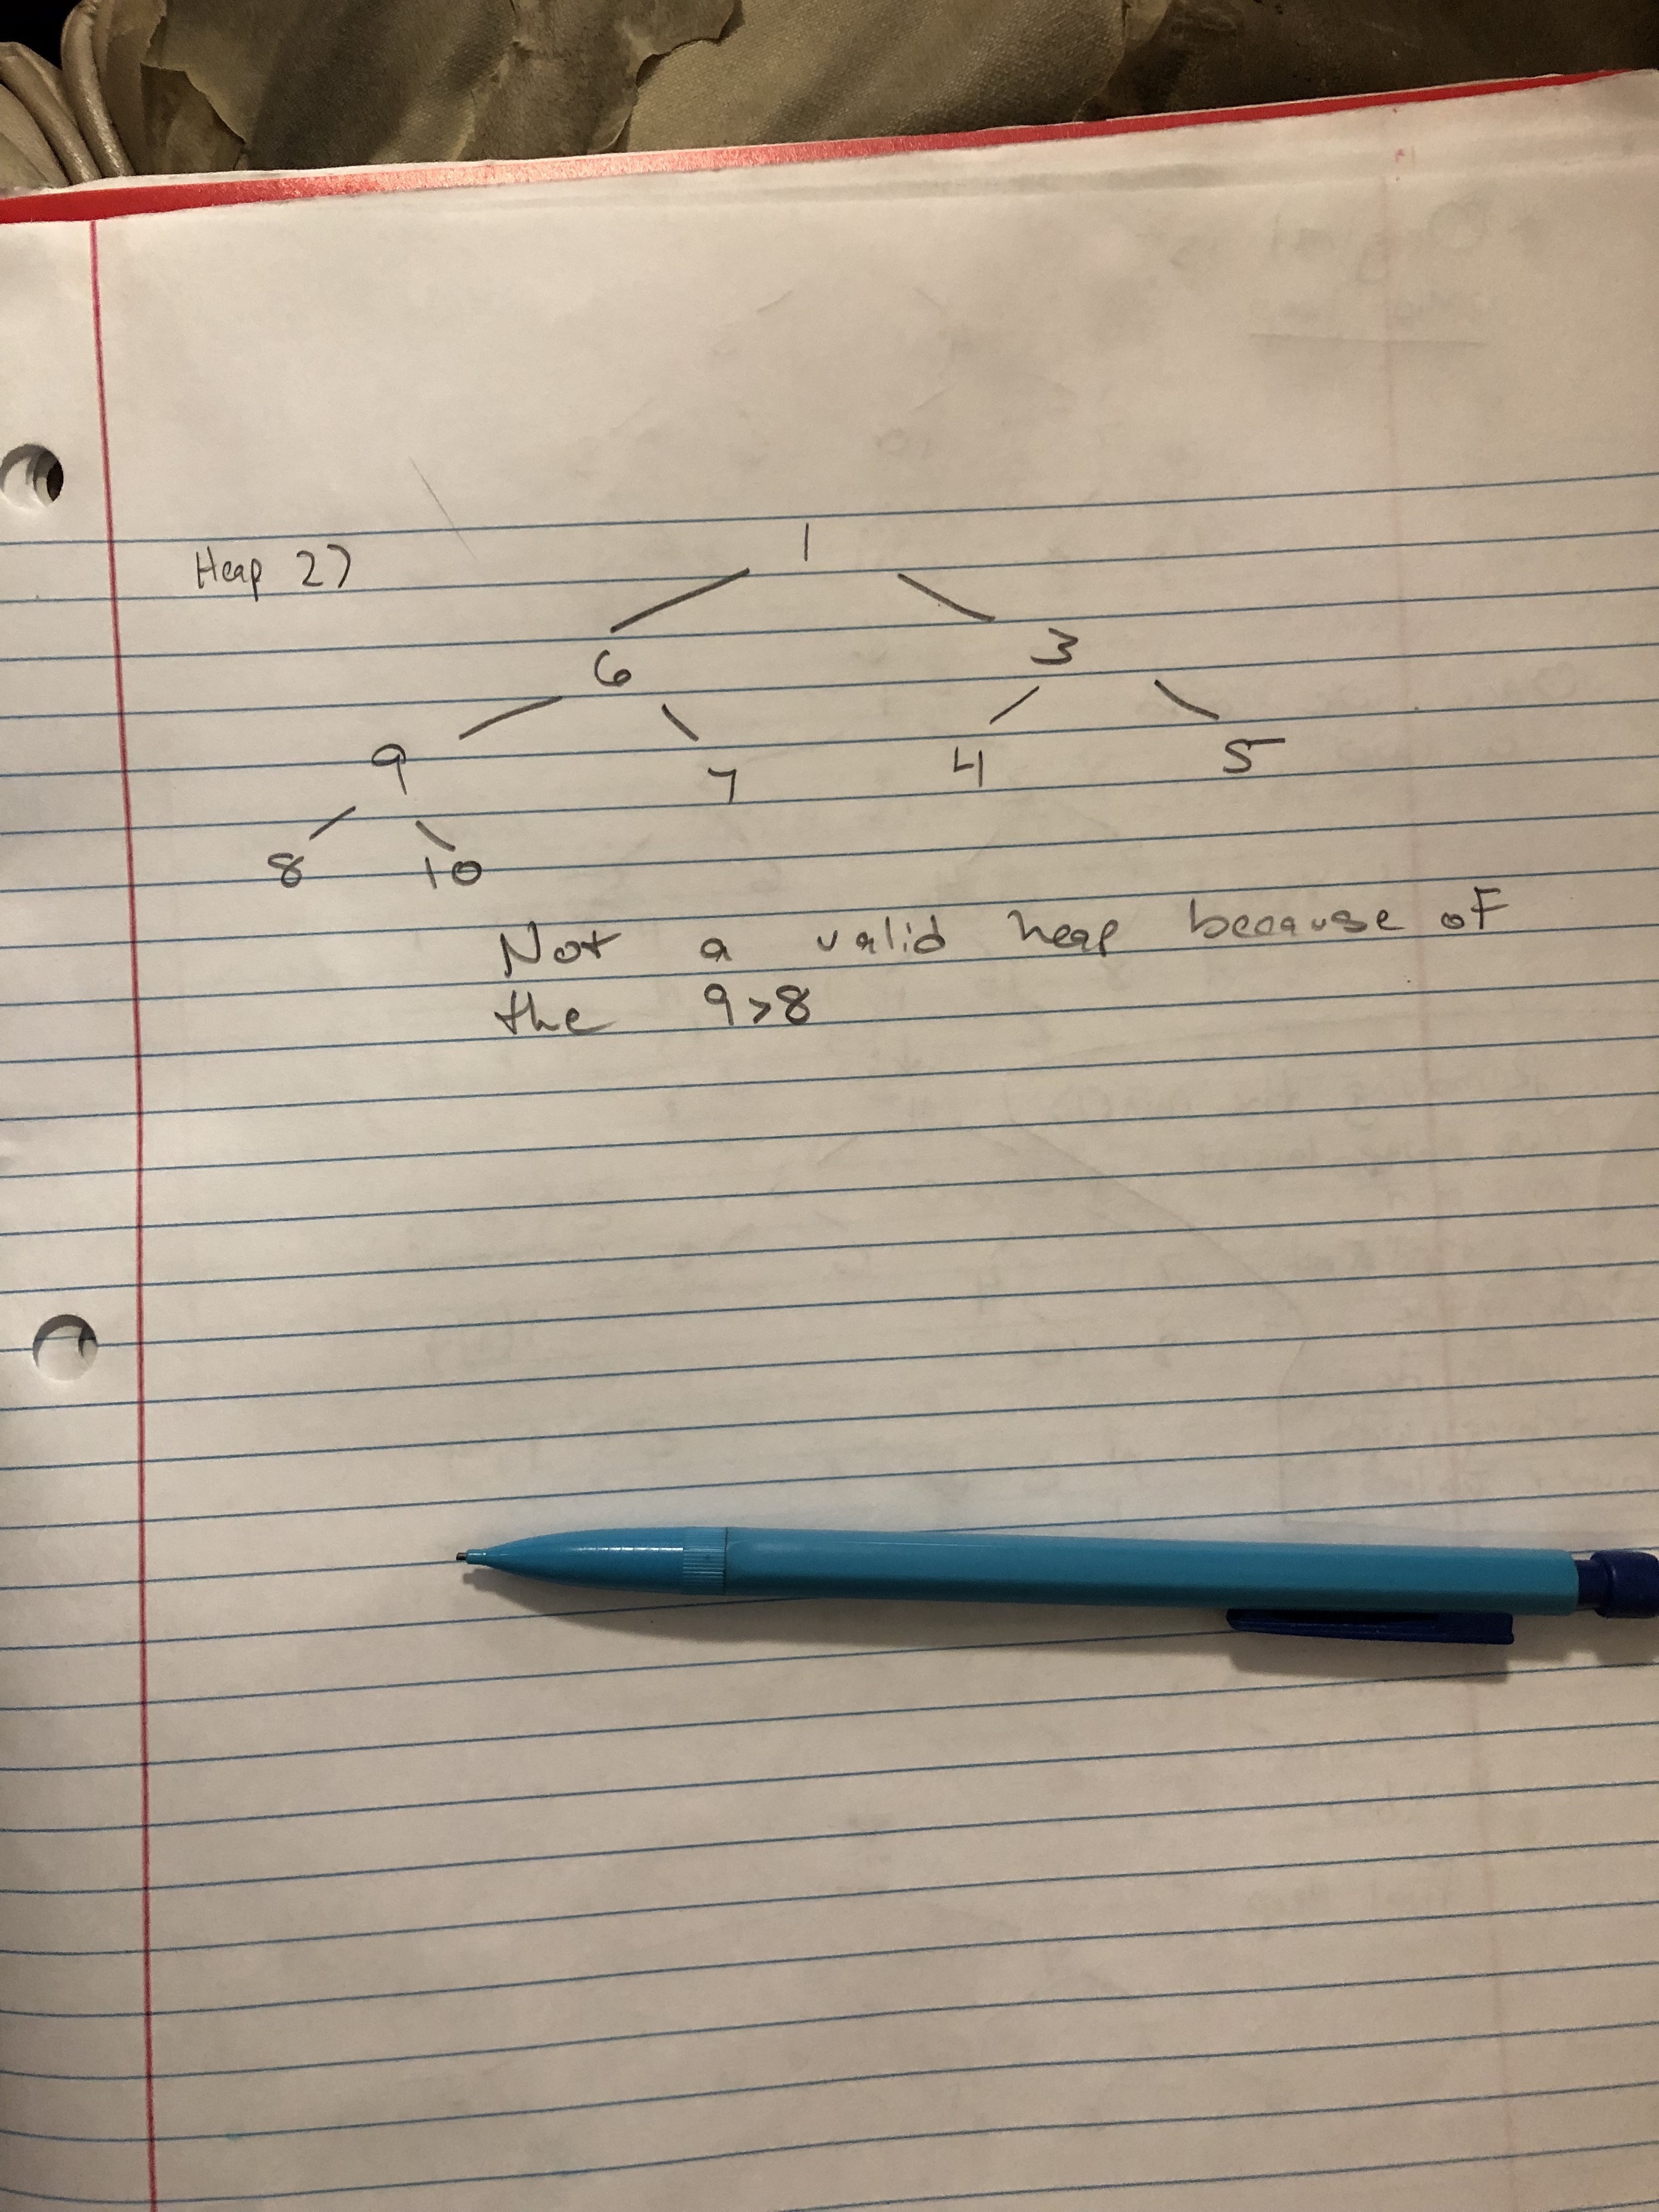 Heap 2)
1
6 3
9 7 4 5
8 10
Not a valid heap because of
the 9>8